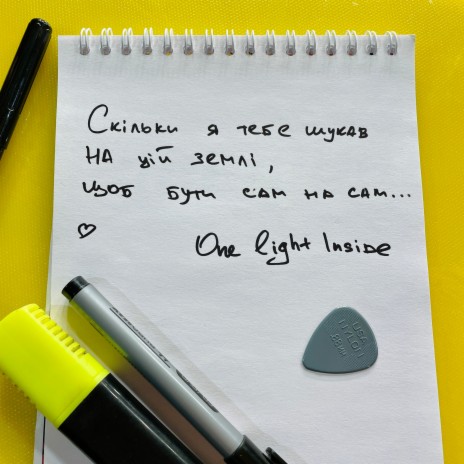 Скільки я тебе шукав
на цій землі,
щоб бути сам на сам...
♡ One light Inside
USA
NYLON
.88mm